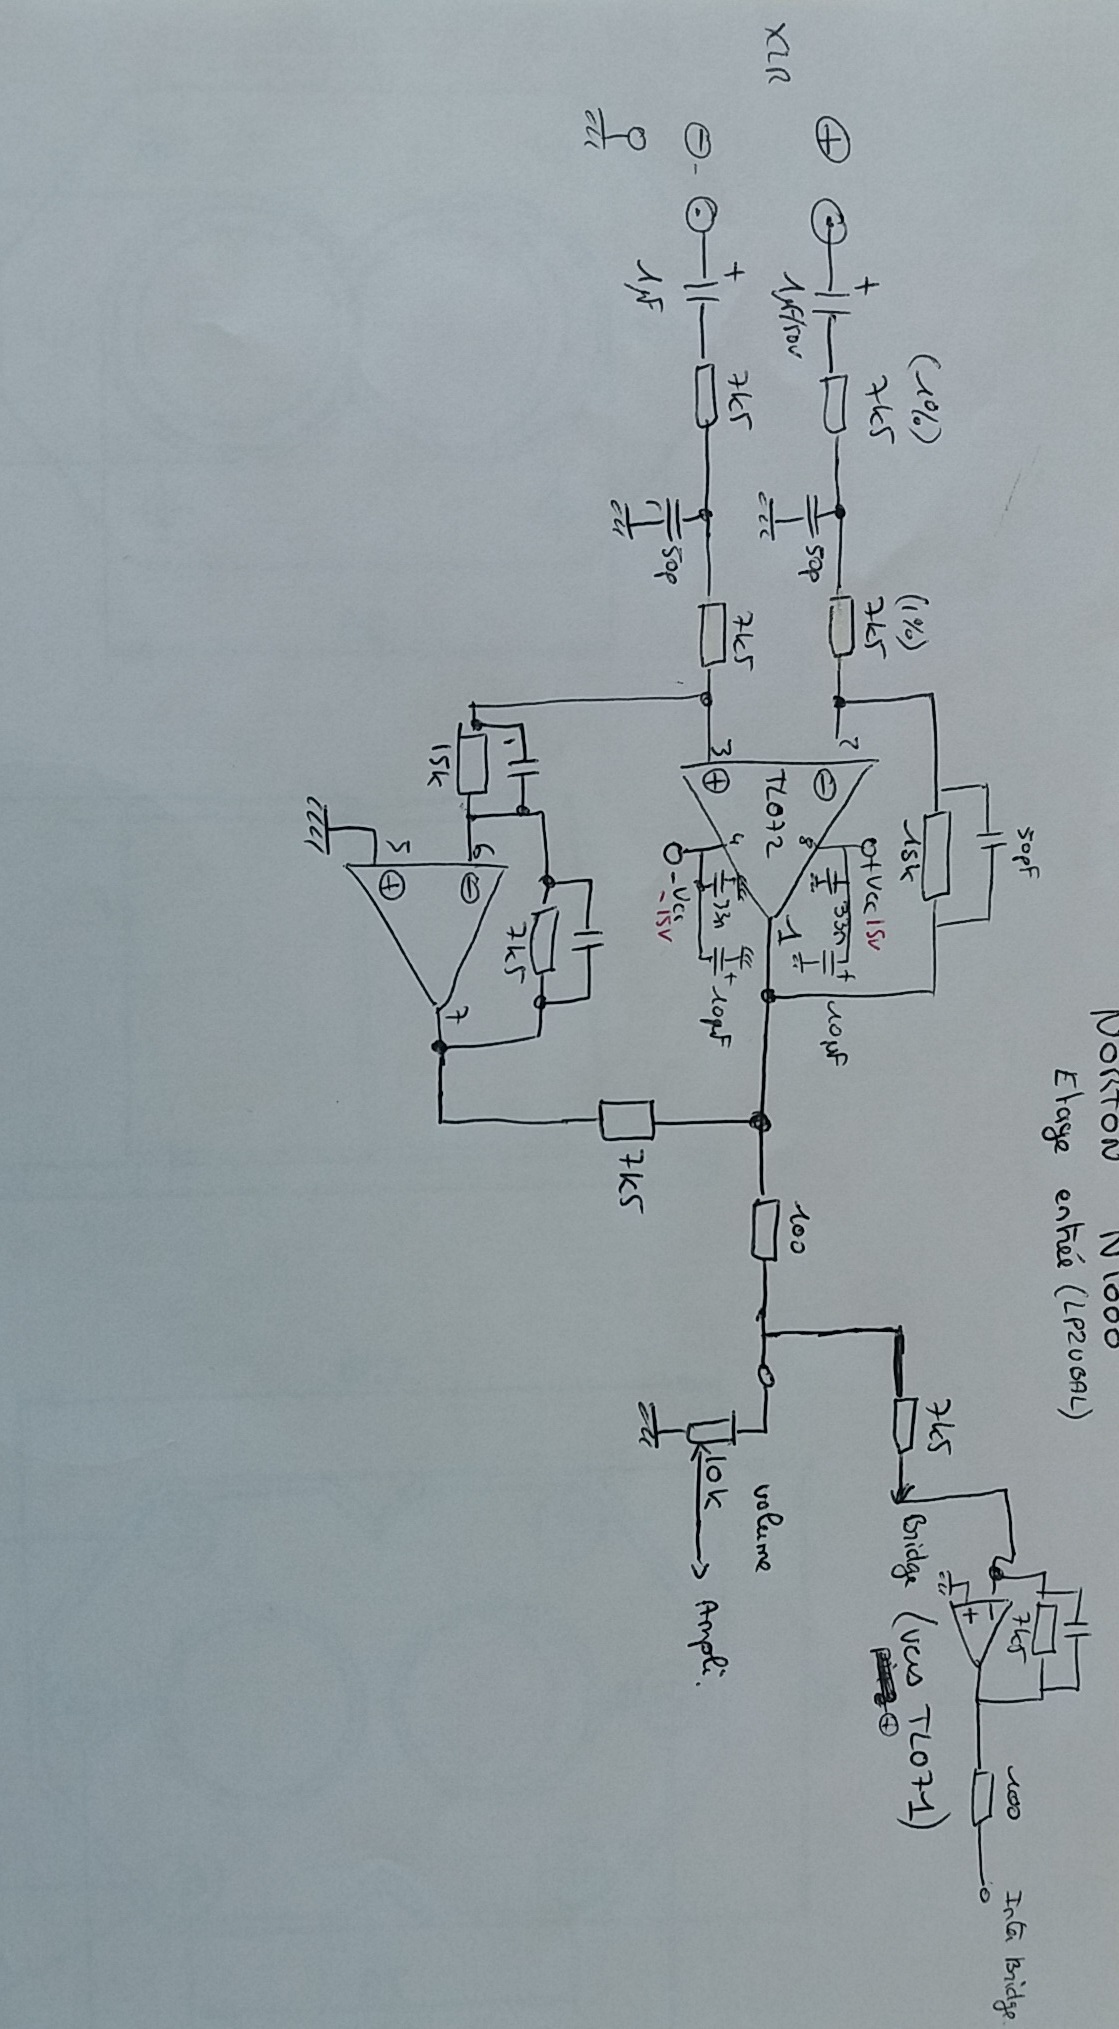 NORTON N1000
Etage entrée (LP2UBAL)
XLR
+
-
(1%)
+
1µF/50V
7k5
50p
(1%)
7k5
50pF
15k
2
3
TL072
8
4
1
+Vcc 15V
33n
+
10µF
-Vcc
-15V
33n
+
10µF
+
1µF
7k5
50p
7k5
15k
5
6
7
7k5
7k5
100
7k5
Bridge (vers TL071)
+
7k5
100
Inter Bridge
volume
10k
Ampli.